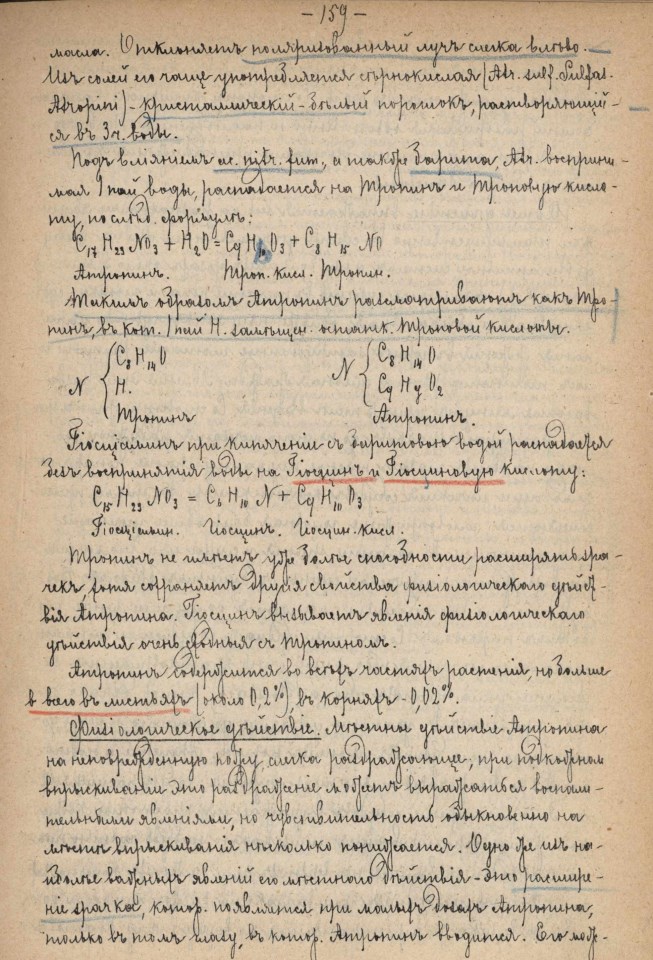 - 159 -
масла. Отклоняетъ поляризованный лучъ слегка влѣво.
Изъ солей его чаще употребляется сѣрнокислая (Atr. sulf. Sulfas.
Atropini) - кристаллическій - бѣлый порошокъ, растворяющій-
ся въ 3 ч. воды.
Подъ вліяніемъ ac. nitr. fum., а также барита, Atr. восприни-
мая 1 пай воды, распадается на Тропинъ и Троповую кисло-
ту, по слѣд. формулѣ:
C17 H23 NO3 + H2O = C9 H10 O3 + C8 H15 NO
Атропинъ. Троп. кисл. Тропин.
Такимъ образомъ Атропинъ разсматриваютъ какъ Тро-
пинъ, въ кот. 1 пай H. замѣщен. остатк. Троповой кислоты.
N { C8 H14 O N { C8 H14 O
H. C9 H9 O2
Тропинъ Атропинъ.
Гіосціаминъ при кипяченіи съ баритовою водой распадается
безъ воспринятія воды на Гіосцинъ и Гіосциновую кислоту:
C15 H23 NO3 = C6 H10 N + C9 H10 O3
Гіосціамин. Гіосцинъ. Гіосцин. кисл.
Тропинъ не имѣетъ уже болѣе способности расширять зра-
чекъ, хотя сохраняетъ другія свойства физіологическаго дѣйст-
вія Атропина. Гіосцинъ вызываетъ явленія физіологическаго
дѣйствія очень сходныя съ Тропиномъ.
Атропинъ содержится во всѣхъ частяхъ растенія, но больше
всего въ листьяхъ (около 0,2%), въ корняхъ - 0,02%.
Физіологическое дѣйствіе. Мѣстное дѣйствіе Атропина
на неповрежденную кожу слегка раздражающе; при подкожном
впрыскиваніи это раздраженіе можетъ выражаться воспали-
тельными явленіями, но чувствительность обыкновенно на
мѣстѣ впрыскиванія нѣсколько понижается. Одно же изъ на-
иболѣе важныхъ явленій его мѣстнаго дѣйствія - это расшире-
ніе зрачка, котор. появляется при малыхъ дозахъ Атропина,
только въ томъ глазу, въ котор. Атропинъ вводится. Его мож-